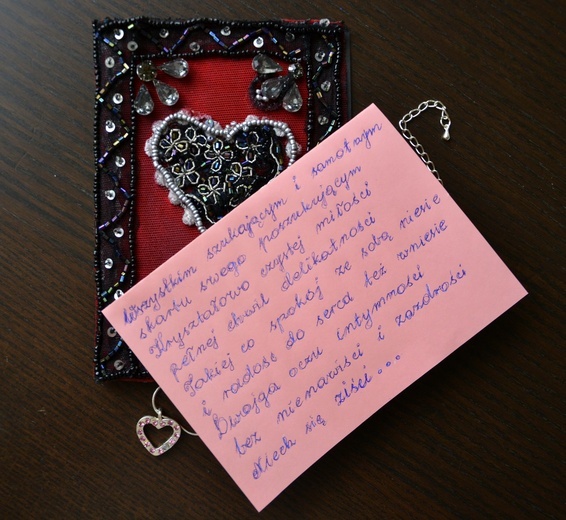 Wszystkim szukającym i samotnym
skarbu swego poszukującym
Kryształowo czystej miłości
pełnej chwil delikatności
Takiej co spokój ze sobą niesie
i radość do serca też wniesie
Dwojga oczu intymności
bez nienawiści i zazdrości
Niech się ziści...